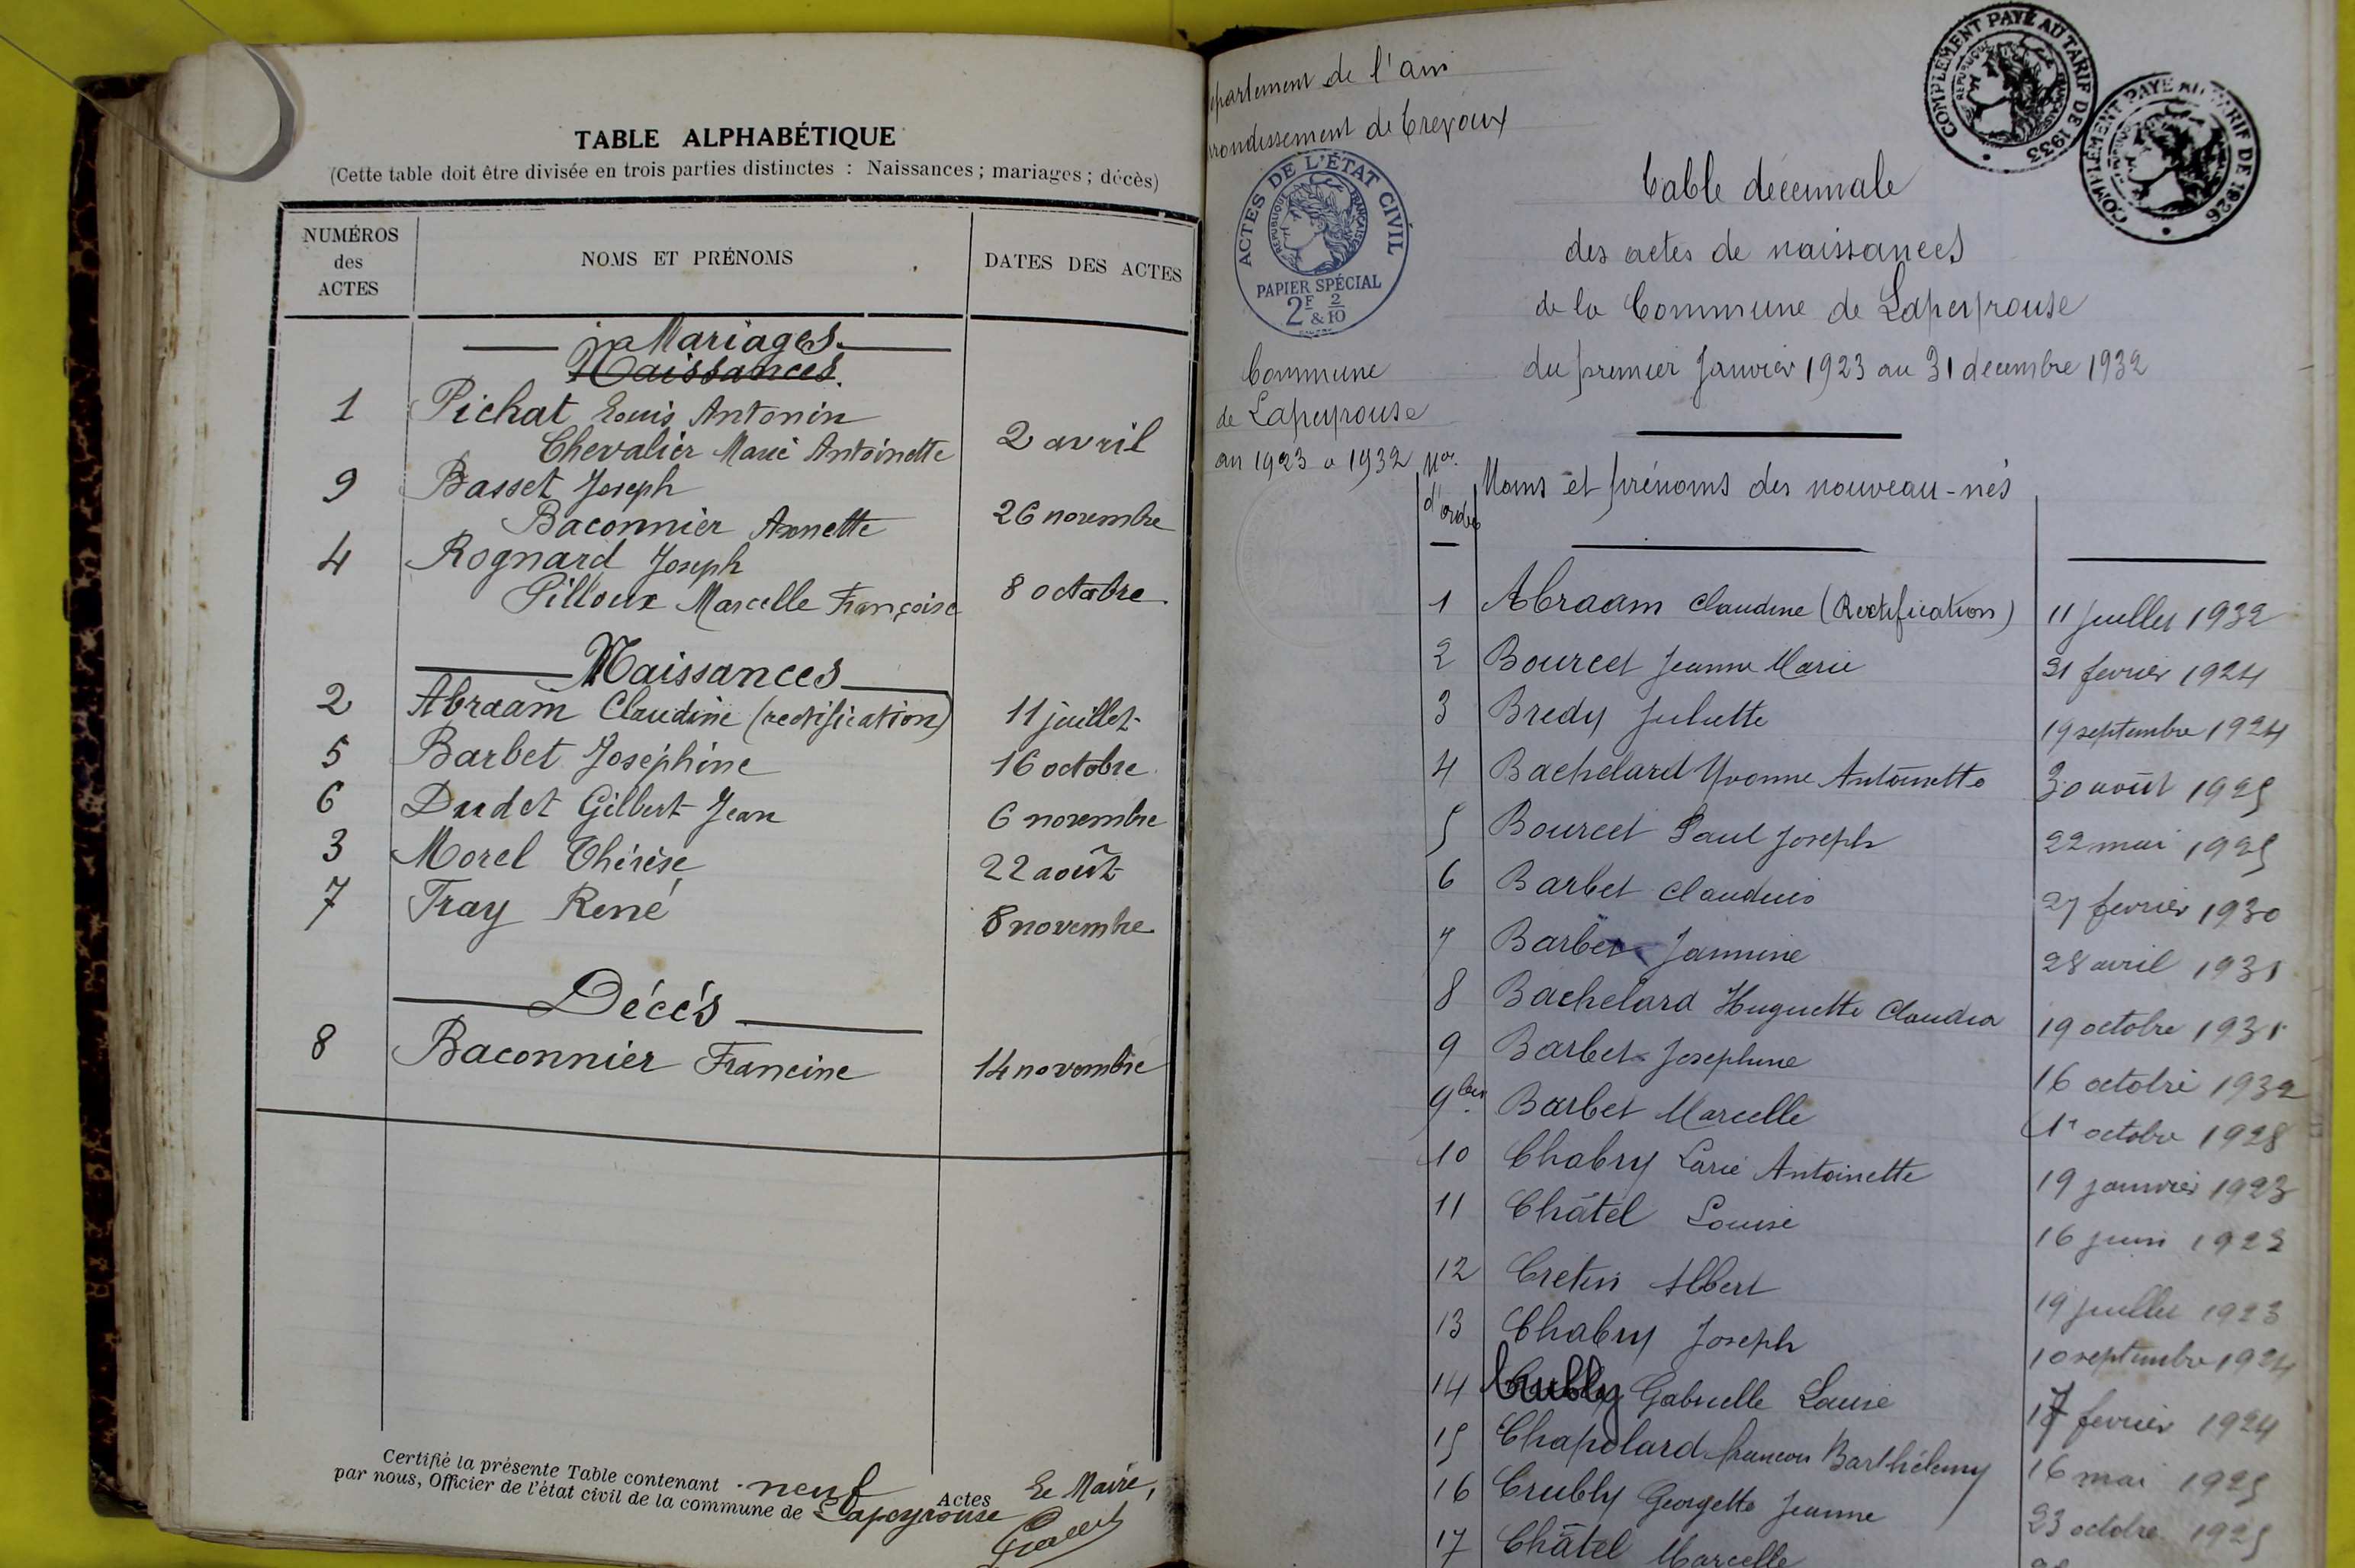 TABLE ALPHABÉTIQUE
(Cette table doit être divisée en trois parties distinctes : Naissances ; mariages ; décès)
NUMÉROS des ACTES NOMS ET PRÉNOMS DATES DES ACTES
Mariages
Naissances
1 Pichat Louis Antonin
Chevalier Marie Antoinette 2 avril
9 Basset Joseph
Baconnier Annette 26 novembre
4 Rognard Joseph
Pilloux Marcelle Françoise 8 octobre
Naissances
2 Abraam Claudine (rectification) 11 juillet
5 Barbet Joséphine 16 octobre
6 Dudet Gilbert Jean 6 novembre
3 Morel Thérèse 22 août
7 Tray René 8 novembre
Décés
8 Baconnier Francine 14 novembre
Certifié la présente Table contenant neuf Actes
par nous, Officier de l'état civil de la commune de Lapeyrouse
Le Maire,
epartement de l'ain
rrondissement de Trevoux
ACTES DE L'ÉTAT CIVIL
RÉPUBLIQUE FRANÇAISE
PAPIER SPÉCIAL
2F & 2/10
Commune
de Lapeyrouse
an 1923 a 1932
COMPLÉMENT PAYÉ AU TARIF DE 1933
COMPLÉMENT PAYÉ AU TARIF DE 1926
Table décennale
des actes de naissances
de la Commune de Lapeyrouse
du premier Janvier 1923 au 31 decembre 1932
Nos d'ordre Noms et prénoms des nouveau-nés
1 Abraam Claudine (Rectification) 11 juillet 1932
2 Bourcet Jeanne Marie 21 fevrier 1924
3 Bredy Juliette 19 septembre 1924
4 Bachelard Yvonne Antoinette 30 août 1925
5 Bourcet Paul Joseph 22 mai 1925
6 Barbet Claudius 27 fevrier 1930
7 Barbet Jannine 28 avril 1931
8 Bachelard Huguette Claudia 19 octobre 1931
9 Barbet Josephine 16 octobre 1932
9 bis Barbet Marcelle 1er octobre 1928
10 Chabry Antoinette 19 janvier 1923
11 Châtel Louise 16 juin 1923
12 Cretin Albert 19 juillet 1923
13 Chabry Joseph 10 septembre 1924
14 Crubly Gabrielle Louise fevrier 1924
15 Chapolard francois Barthélemy 16 mai 1925
16 Crubly Georgette Jeanne 23 octobre 1925
17 Châtel Marcelle